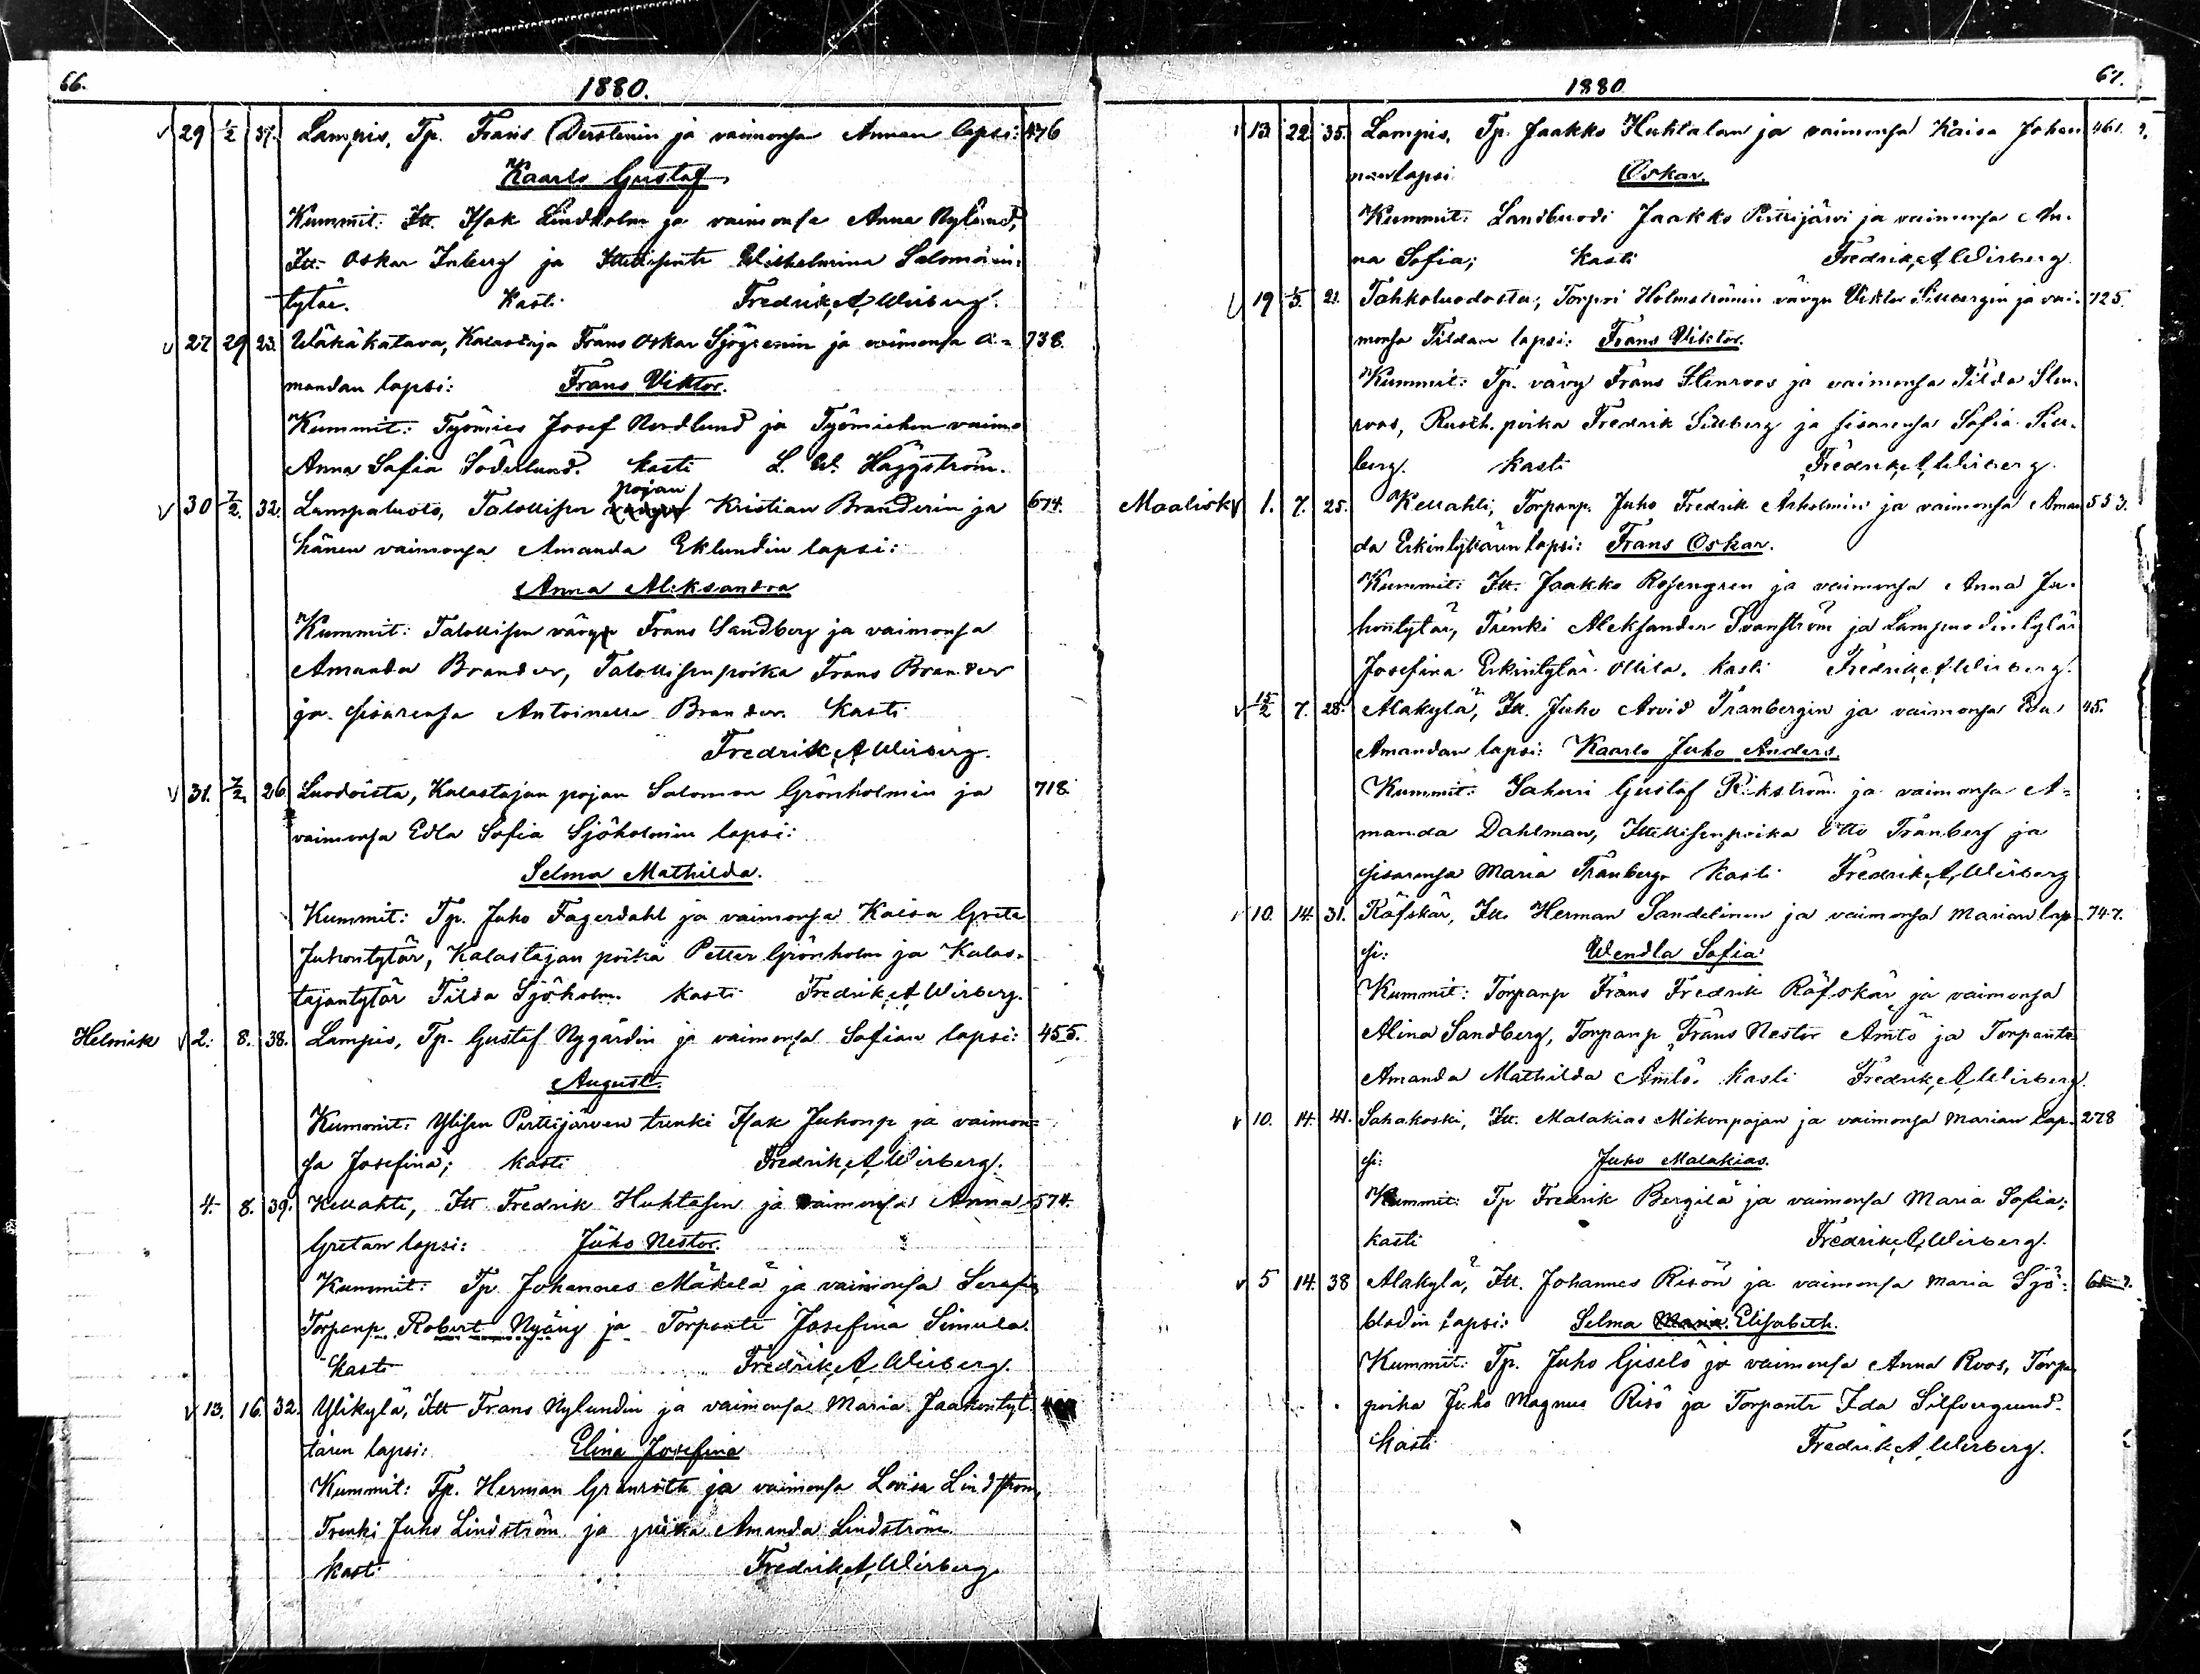 66.
1880.
29 1/2 37. Lampis, Tp. Frans Österlenin ja vaimonsa Annan lapsi: 476
Kaarlo Gustaf
Kummit: Itt. Isak Lindholm ja vaimonsa Anna Nylund,
Itt. Oskar Inberg ja Ittellisentr Wilhelmina Salomonin-
tytär. Kasti Fredrik A Wirberg.
27 29 23. Wäkäkatava, Kalastaja Frans Oskar Sjögrenin ja vaimonsa A- 738.
mandan lapsi: Frans Viktor.
Kummit: Työmies Josef Nordlund ja Työmiehen vaimo
Anna Sofia Söderlund. Kasti L. W. Häggström.
30 7/2. 32. Lampaluoto, Talollisen pojan Kristian Branderin ja 674.
hänen vaimonsa Amanda Eklundin lapsi:
Anna Aleksandra
Kummit: Talollisen vävy Frans Sandberg ja vaimonsa
Amanda Brander, Talollisenpoika Frans Brander
ja sisarensa Antoinette Brander. Kasti
Fredrik A Wirberg.
31. 7/2. 26. Luodoista, Kalastajan pojan Salomon Grönholmin ja 718.
vaimonsa Edla Sofia Sjöholmin lapsi:
Selma Mathilda.
Kummit: Tp. Juho Fagerdahl ja vaimonsa Kaisa Greta
Juhontytär, Kalastajan poika Petter Grönholm ja Kalas-
tajantytär Tilda Sjöholm. Kasti Fredrik A Wirberg.
Helmik 2. 8. 38. Lampis, Tp. Gustaf Nygårdin ja vaimonsa Sofian lapsi: 455.
August.
Kummit: Ylisen Pirttijärven trenki Isak Juhonp ja vaimon-
sa Josefina; Kasti Fredrik A Wirberg.
4. 8. 39. Kellahti, Itt Fredrik Huhtasen ja vaimonsa Anna 574.
Gretan lapsi: Juho Nestor.
Kummit: Tp Johannes Mäkelä ja vaimonsa Serafia
Torpanp. Robert Nyäng ja Torpantr Josefina Simula.
Kasti Fredrik A Wirberg.
13. 16. 32. Ylikylä, Itt Frans Nylundin ja vaimonsa Maria Jaakontyt-
tären lapsi: Elina Josefina
Kummit: Tp. Herman Granroth ja vaimonsa Lovisa Lindström,
Trenki Juho Lindström ja piika Amanda Lindström.
Kasti Fredrik A Wirberg
67.
1880
13. 22. 35. Lampis, Tp. Jaakko Huhtalan ja vaimonsa Kaisa Johan 461.
nan lapsi Oskar.
Kummit: Landbuodi Jaakko Pirttijärvi ja vaimonsa An-
na Sofia; Kasti Fredrik A Wirberg
19 1/3. 21. Tahkoluodosta, Torpri Holmströmin vävyn Viktor Sillbergin ja vai- 725.
monsa Tildan lapsi: Frans Viktor.
Kummit: Tp. vävy Frans Stenroos ja vaimonsa Tilda Sten-
roos, Rusth. poika Fredrik Sillberg ja sisarensa Sofia Sill-
berg. Kasti Fredrik A Wirberg.
Maalisk 1. 7. 25. Kellahti, Torpanp. Juho Fredrik Arholmin ja vaimonsa Aman 553.
da Erkintytären lapsi: Frans Oskar.
Kummit: Itt. Jaakko Rosengren ja vaimonsa Anna Ju-
hontytär, Trenki Aleksander Svanström ja Lampuodintytär
Josefina Erkintytär Ollila. Kasti Fredrik A Wirberg.
15/2 7. 28. Alakylä, Itt. Juho Arvid Tranbergin ja vaimonsa Eva 45.
Amandan lapsi: Kaarlo Juho Anders.
Kummit: Sahuri Gustaf Rikström ja vaimonsa A-
manda Dahlman, Ittellisenpoika Otto Tranberg ja
sisarensa Maria Tranberg. Kasti Fredrik A Wirberg
10. 14. 31. Räfskär, Itt. Herman Sandelinin ja vaimonsa Marian lap- 747.
si: Wendla Sofia
Kummit: Torpanp Frans Fredrik Räfskär ja vaimonsa
Alina Sandberg, Torpanp Frans Nestor Ämtö ja Torpantr
Amanda Mathilda Ämtö. Kasti Fredrik A Wirberg.
10. 14. 41. Sahakoski, Itt. Malakias Mikonpojan ja vaimonsa Marian lap- 278
si: Juho Malakias.
Kummit: Tp Fredrik Bergilä ja vaimonsa Maria Sofia;
Kasti Fredrik A Wirberg.
5 14. 38 Alakylä, Itt. Johannes Risön ja vaimonsa Maria Sjö-
blodin lapsi: Selma Maria Elisabeth.
Kummit: Tp. Juho Giselö ja vaimonsa Anna Roos, Torp.
poika Juho Magnus Risö ja Torpantr Ida Silfvergrund.
Kasti Fredrik A Wirberg.